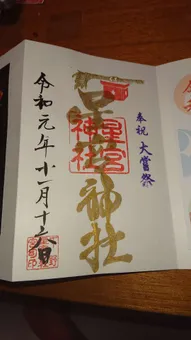 奉祝 大嘗祭
星宮神社
星宮
神社
令和元年十一月十六日